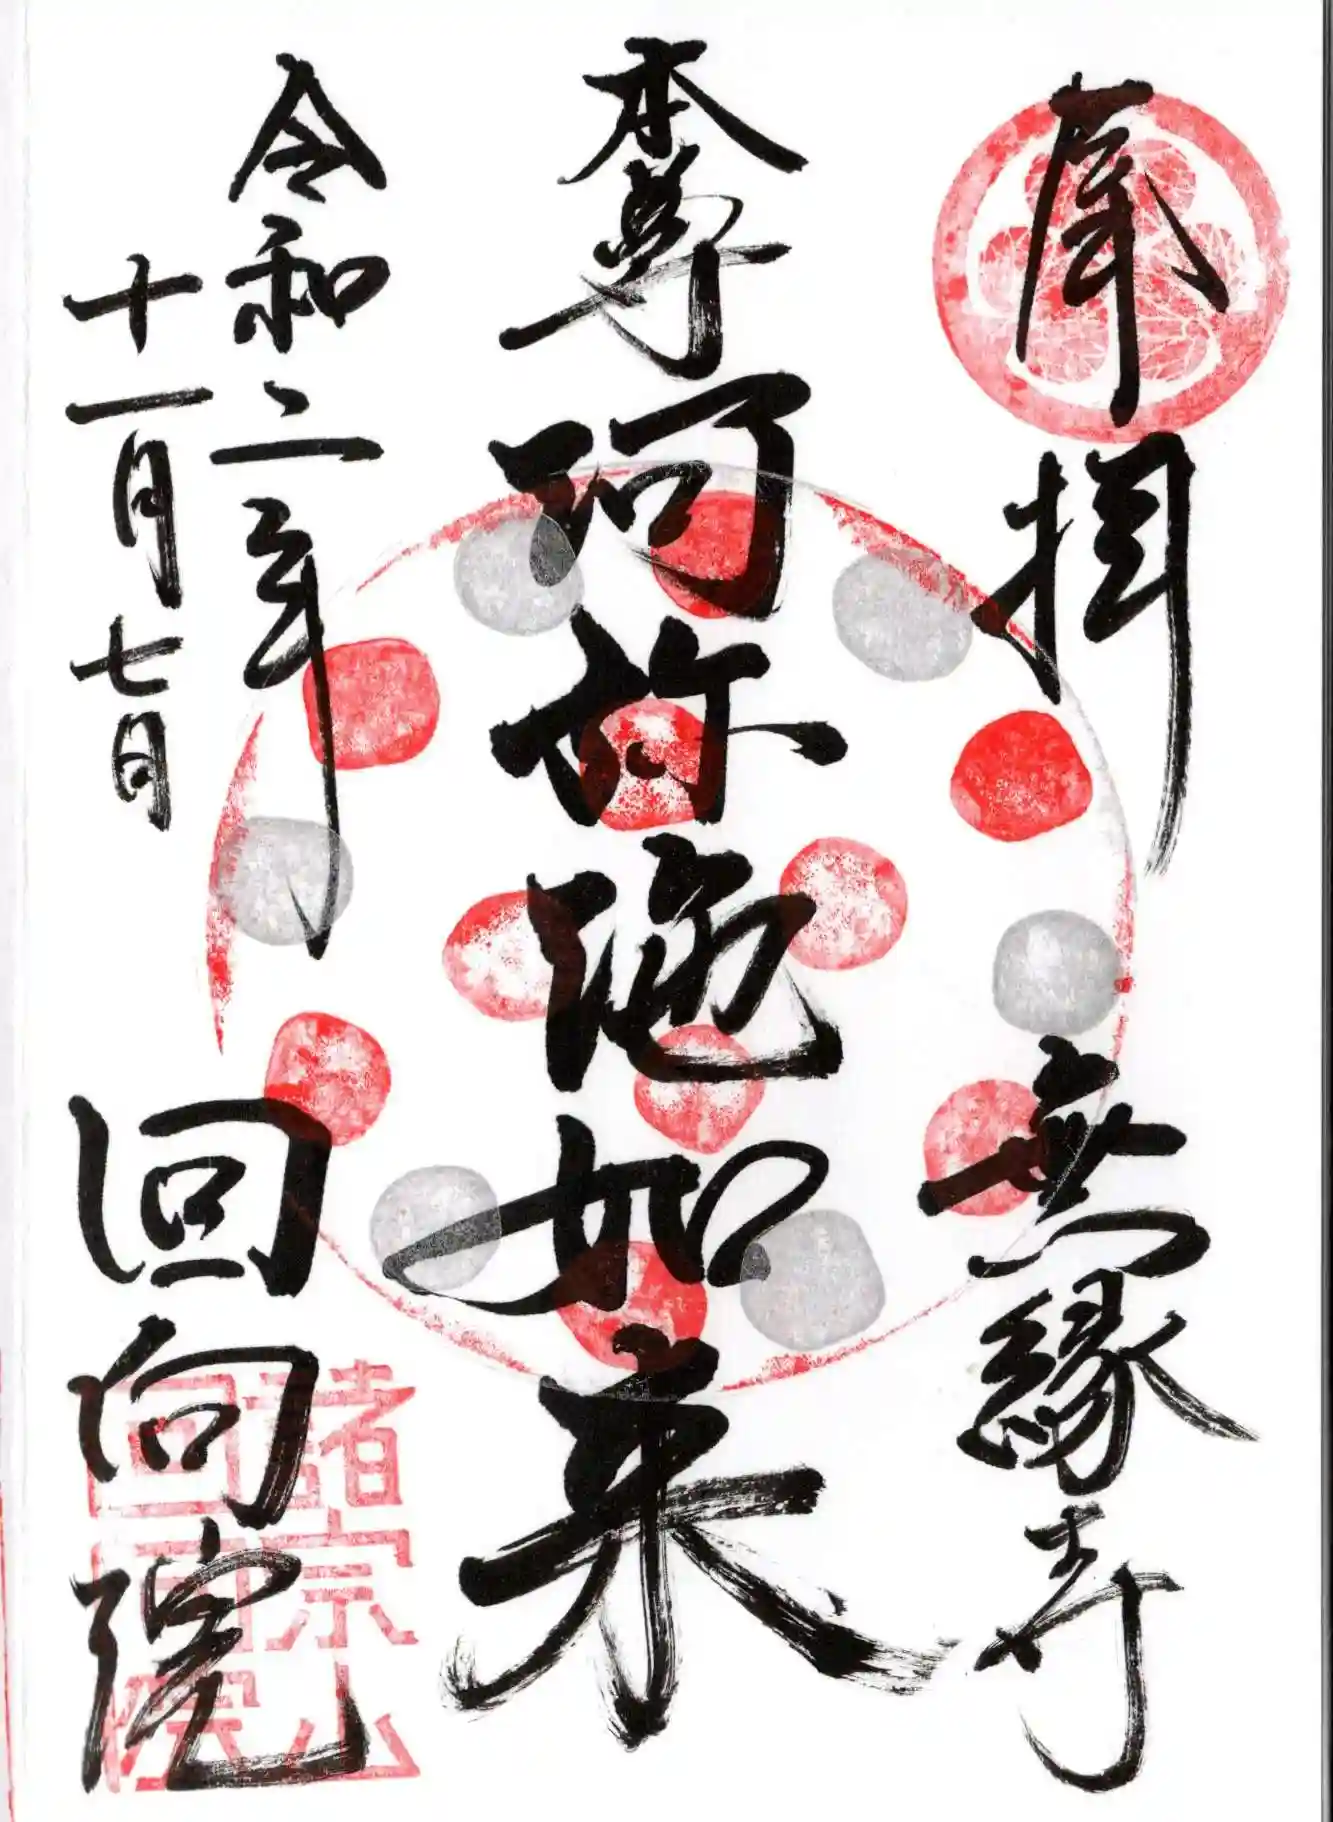 無縁寺
本尊阿弥陀如来
令和二年
十一月七日
回向院
諸宗山
回向院